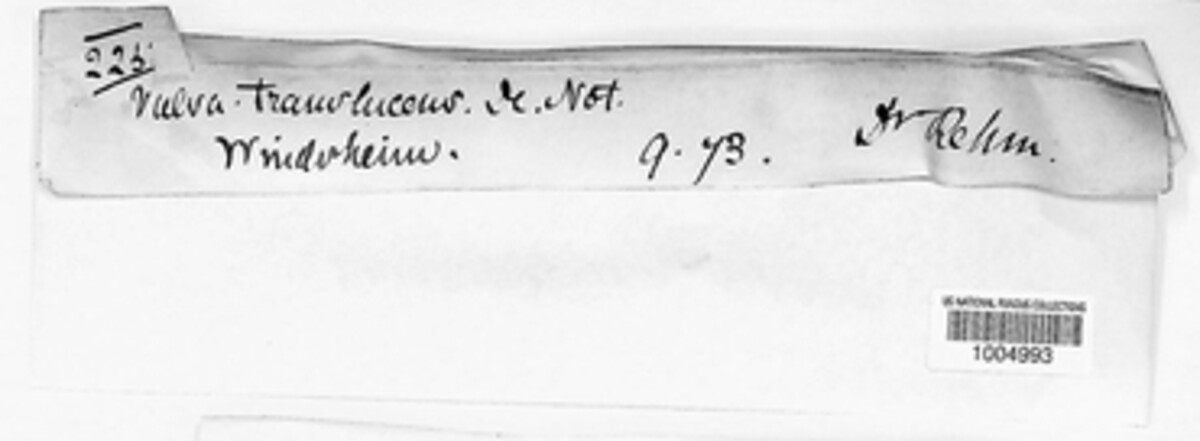 225.
Valsa translucens. De. Not.
Windsheim. 9. 73. Dr Rehm.
US NATIONAL FUNGUS COLLECTIONS
1004993